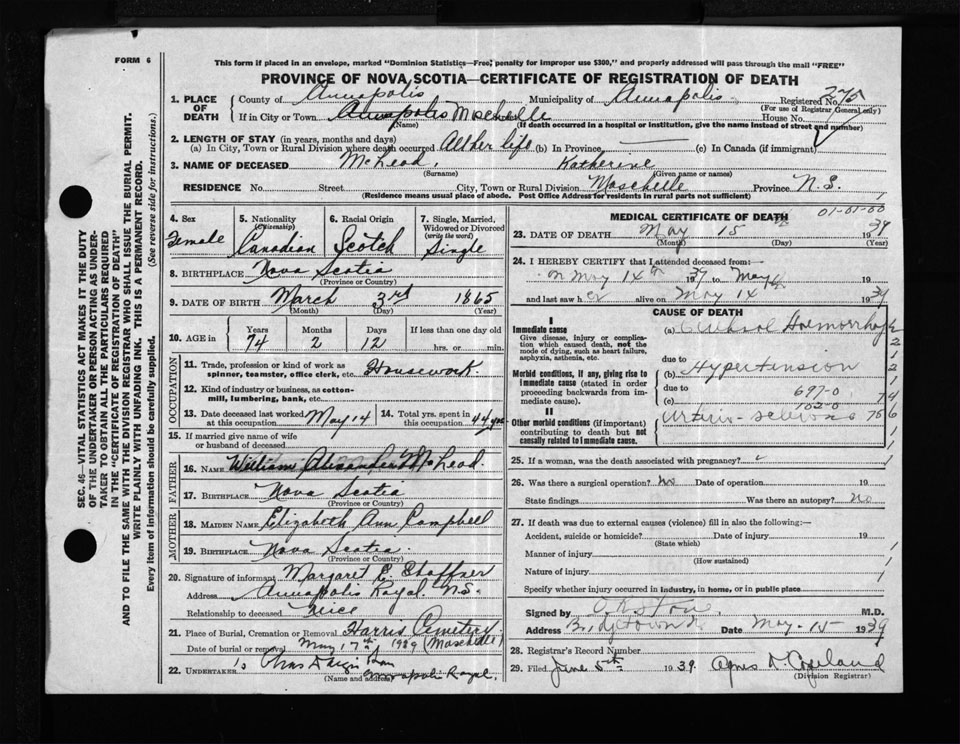 FORM 6
This form if placed in an envelope, marked "Dominion Statistics—Free, penalty for improper use $300," and properly addressed will pass through the mail "FREE"
PROVINCE OF NOVA SCOTIA—CERTIFICATE OF REGISTRATION OF DEATH
1. PLACE OF DEATH
County of Annapolis Municipality of Annapolis Registered No. 275
(For use of Registrar General only)
If in City or Town Annapolis Moschelle House No.
(Name) (If death occurred in a hospital or institution, give the name instead of street and number)
2. LENGTH OF STAY (in years, months and days)
(a) In City, Town or Rural Division where death occurred All her life (b) In Province (c) In Canada (if immigrant)
3. NAME OF DECEASED McLeod, Katherine
(Surname) (Given name or names)
RESIDENCE No. Street City, Town or Rural Division Moschelle Province N.S.
(Residence means usual place of abode. Post Office Address for residents in rural parts not sufficient) 1
4. Sex Female
5. Nationality (Citizenship) Canadian
6. Racial Origin Scotch
7. Single, Married, Widowed or Divorced (write the word) Single
8. BIRTHPLACE Nova Scotia
(Province or Country)
9. DATE OF BIRTH March 3rd 1865
(Month) (Day) (Year)
10. AGE in Years 74 Months 2 Days 12 If less than one day old hrs. or min.
OCCUPATION
11. Trade, profession or kind of work as spinner, teamster, office clerk, etc. Housework.
12. Kind of industry or business, as cotton-mill, lumbering, bank, etc.
13. Date deceased last worked at this occupation May 14
14. Total yrs. spent in this occupation 44 yrs
15. If married give name of wife or husband of deceased
FATHER
16. NAME William Alexander McLeod.
17. BIRTHPLACE Nova Scotia
(Province or Country)
MOTHER
18. MAIDEN NAME Elizabeth Ann Campbell
19. BIRTHPLACE Nova Scotia.
(Province or Country)
20. Signature of informant Margaret E. Shaffner
Address Annapolis Royal N.S.
Relationship to deceased Niece
21. Place of Burial, Cremation or Removal Harris Cemetery
Date of burial or removal May 17th 1939 (Moschelle)
22. UNDERTAKER
(Name and address) Annapolis Royal.
MEDICAL CERTIFICATE OF DEATH 01-01-00
23. DATE OF DEATH May 15th 1939
(Month) (Day) (Year)
24. I HEREBY CERTIFY that I attended deceased from:—
on May 14th 1939 to May 14 19
and last saw her alive on May 14 1939
CAUSE OF DEATH
I
Immediate cause
Give disease, injury or complication which caused death, not the mode of dying, such as heart failure, asphyxia, asthenia, etc.
(a) Cerebral Haemorrhage
due to
Morbid conditions, if any, giving rise to immediate cause (stated in order proceeding backwards from immediate cause).
(b) Hypertension
due to 697-0
(c) 102-0
II
Other morbid conditions (if important) contributing to death but not causally related to immediate cause.
Arterio-sclerosis
25. If a woman, was the death associated with pregnancy?
26. Was there a surgical operation? No Date of operation 19
State findings Was there an autopsy? No
27. If death was due to external causes (violence) fill in also the following:—
Accident, suicide or homicide? Date of injury 19
(State which)
Manner of injury
(How sustained)
Nature of injury
Specify whether injury occurred in industry, in home, or in public place
Signed by M.D.
Address Bridgetown Date May-15 1939
28. Registrar's Record Number
29. Filed June 5th 1939. Agnes D. Copeland
(Division Registrar)
SEC. 46—VITAL STATISTICS ACT MAKES IT THE DUTY OF THE UNDERTAKER OR PERSON ACTING AS UNDERTAKER TO OBTAIN ALL THE PARTICULARS REQUIRED IN THE "CERTIFICATE OF REGISTRATION OF DEATH" AND TO FILE THE SAME WITH THE DIVISION REGISTRAR WHO SHALL ISSUE THE BURIAL PERMIT.
WRITE PLAINLY WITH UNFADING INK. THIS IS A PERMANENT RECORD.
Every item of information should be carefully supplied. (See reverse side for instructions.)